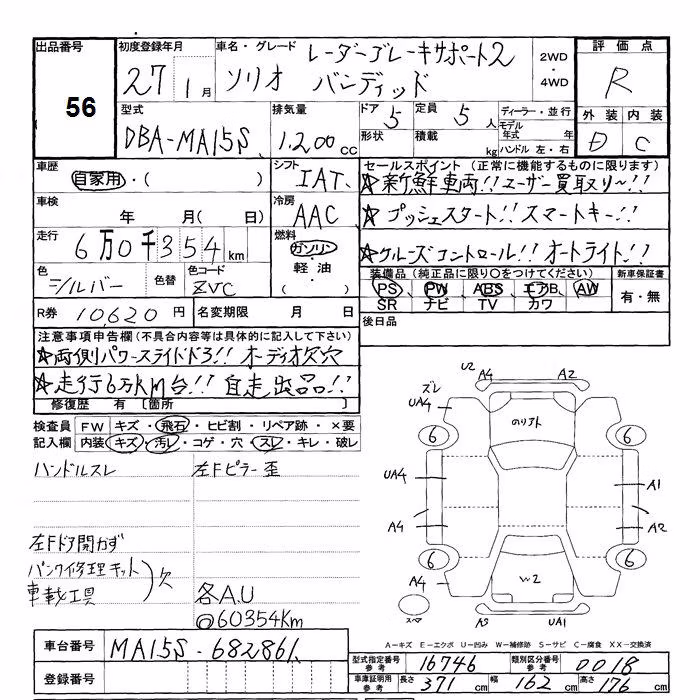 出品番号
56
初度登録年月
27年 1月
車名・グレード
レーダーブレーキサポート2
ソリオ バンディッド
2WD
・
4WD
評価点
R
外装 内装
D C
型式
DBA-MA15S
排気量
1.200cc
ドア 5
定員 5人
形状
積載 kg
ディーラー・並行
モデル年式 年式
ハンドル 左・右
車歴
自家用・( )
シフト
IAT
車検
年 月( 日)
冷房
AAC
走行
6万0千354km
燃料
ガソリン
・
軽油
( )
色
シルバー
色替
色コード
ZVC
R券 10,620円
名変期限 月 日
セールスポイント(正常に機能するものに限ります)
☆新鮮車両!!ユーザー買取り~!!
☆プッシュスタート!!スマートキー!!
☆クルーズコントロール!!オートライト!!
装備品(純正品に限り○をつけてください)
PS PW ABS エアB AW
SR ナビ TV カワ
新車保証書
有・無
後日品
注意事項申告欄(不具合内容等は具体的に記入して下さい)
☆両側パワースライドドア!! オーディオ欠穴
☆走行6万KM台!! 自走出品!!
修復歴 有 [箇所 ]
検査員記入欄
FW キズ・飛石・ヒビ割・リペア跡・×要
内装 キズ・汚レ・コゲ・穴・スレ・キレ・破レ
ハンドルスレ
左Fピラー歪
左Fドア開かず
パンク修理キット
車載工具
欠
各A.U
@60354Km
ズレ
U2
A4
A2
UA4
のりフト
6
6
UA4
A1
A4
A2
6
6
A4
W2
スペア
A3
UA1
A－キズ E－エクボ U－凹み W－補修跡 S－サビ C－腐食 XX－交換済
車台番号
MA15S-682861
登録番号
型式指定番号 参考
16746
類別区分番号 参考
0018
車庫証明用 参考
長さ 371cm
幅 162cm
高さ 176cm